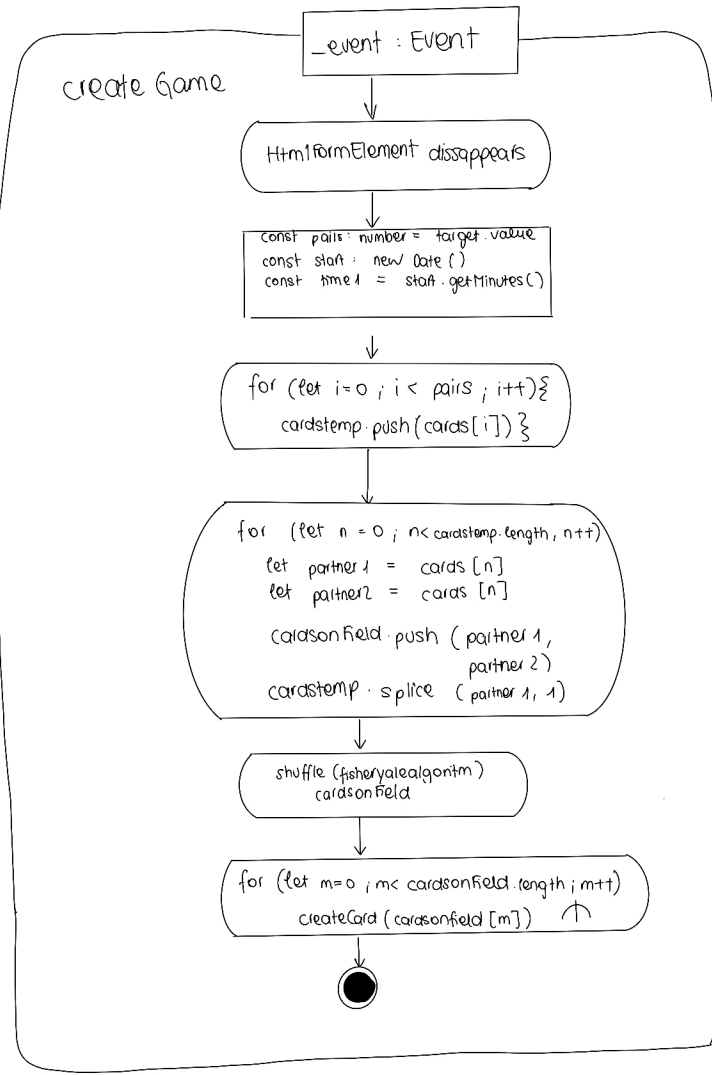 _event : Event
create Game
HtmlFormElement dissappears
const pairs: number = target.value
const start : new Date ()
const time1 = start.getMinutes()
for (let i=0 ; i < pairs ; i++){
cardstemp.push(cards[i]) }
for (let n = 0 ; n< cardstemp.length, n++)
let partner 1 = cards [n]
let partner2 = cards [n]
cardsonfield.push (partner 1,
partner 2)
cardstemp.splice (partner 1, 1)
shuffle (fisheryalealgoritm)
cardsonfield
for (let m=0 ; m< cardsonfield.length ; m++)
createCard (cardsonfield [m])